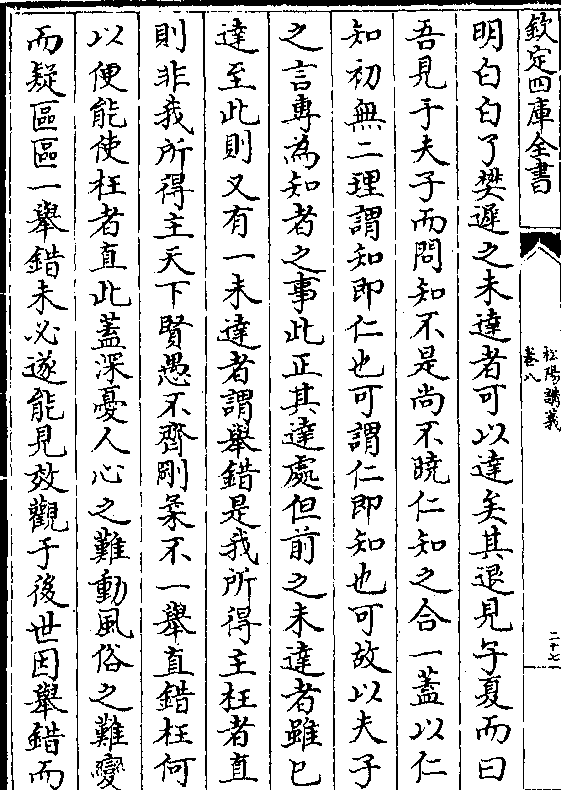 欽定四庫全書
松陽講義
卷八
二十七
明白白了樊遲之未達者可以達矣其退見子夏而曰
吾見于夫子而問知不是尚不曉仁知之合一蓋以仁
知初無二理謂知即仁也可謂仁即知也可故以夫子
之言專為知者之事此正其達處但前之未達者雖已
達至此則又有一未達者謂舉錯是我所得主枉者直
則非我所得主天下賢愚不齊剛柔不一舉直錯枉何
以便能使枉者直此蓋深憂人心之難動風俗之難變
而疑區區一舉錯未必遂能見效觀于後世因舉錯而